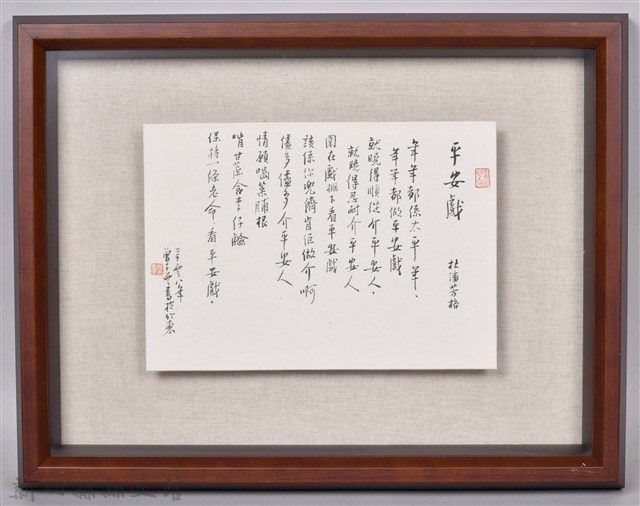 平安戲
杜潘芳格
年年都係太平年，
年年都做平安戲
就曉得順從介平安人，
就曉得忍耐介平安人
圍在戲棚下看平安戲
該係你兜儕肯佢做介啊
儘多儘多介平安人
情願嚙菜脯根
啃甘蔗含李仔鹹
保持一條老命看平安戲，
二〇〇八年